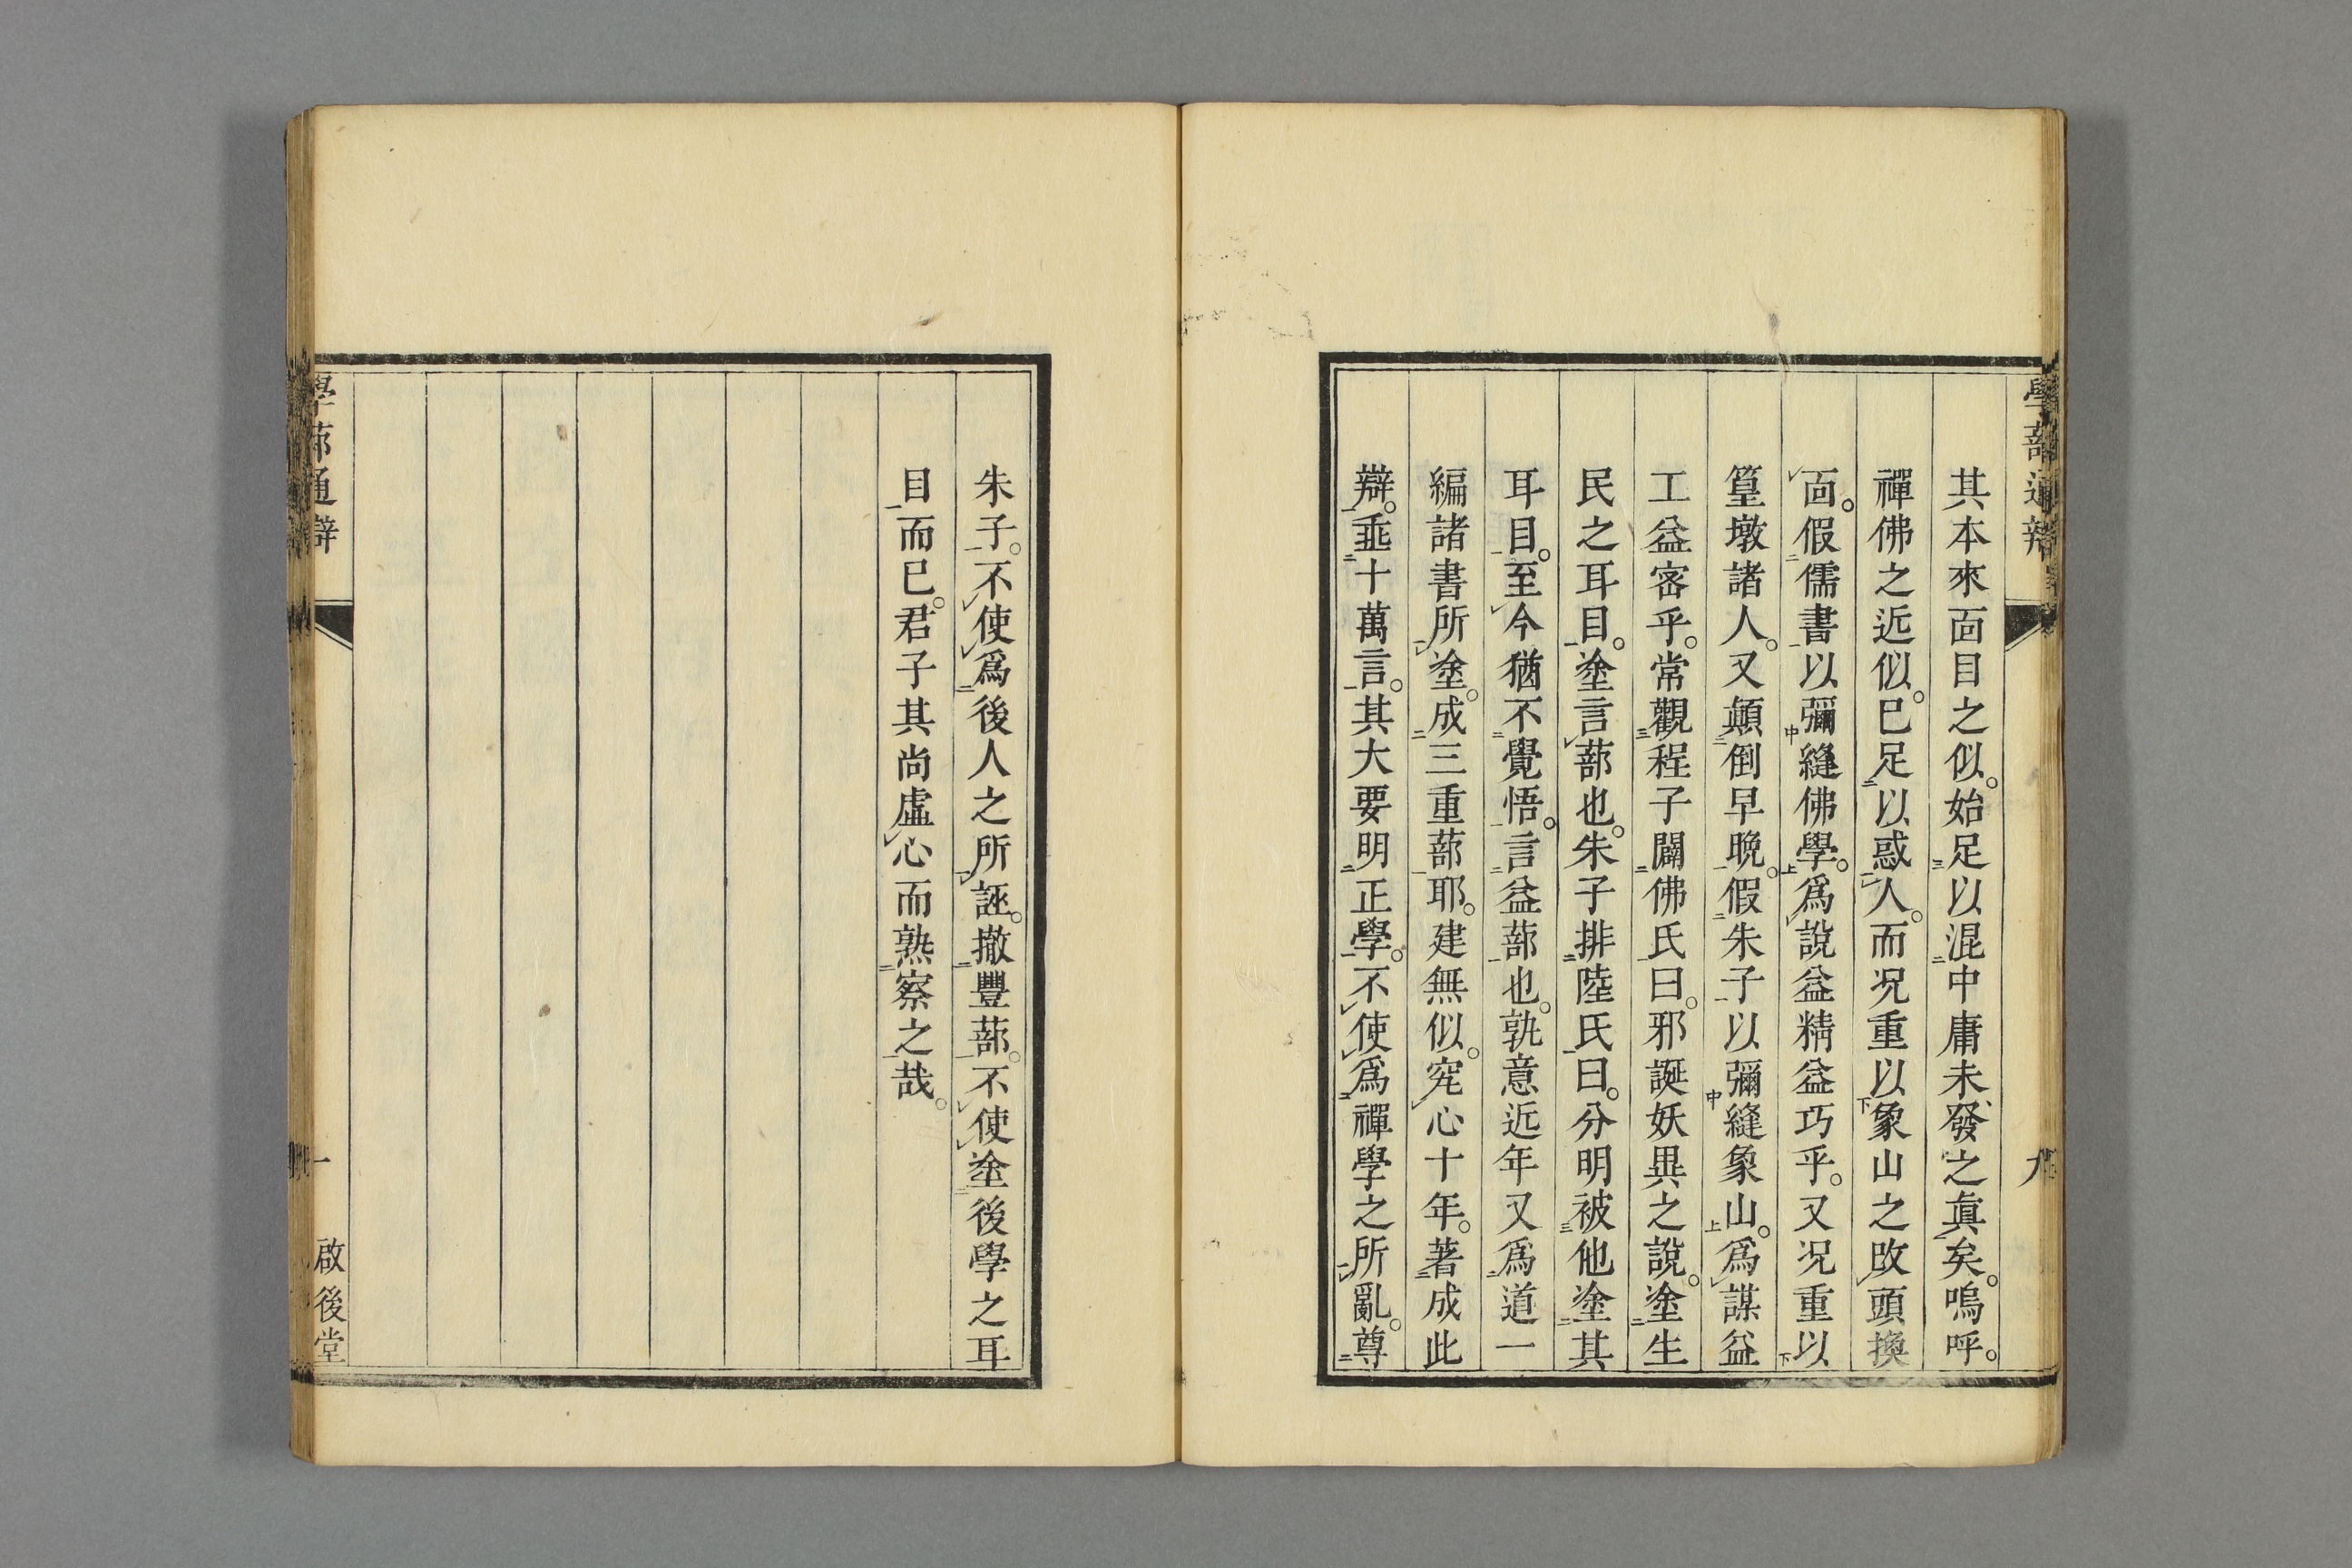 學蔀通辨
九
其本來面目之似。始足以混中庸未發之眞矣。嗚呼。
禪佛之近似。已足以惑人。而况重以象山之改頭換
面。假儒書以彌縫佛學。爲說益精益巧乎。又况重以
篁墩諸人。又顛倒早晩。假朱子以彌縫象山。爲謀益
工益宻乎。常觀程子闢佛氏曰。邪誕妖異之說。塗生
民之耳目。塗言蔀也。朱子排陸氏曰。分明被他塗其
耳目。至今猶不覺悟。言益蔀也。孰意近年又爲道一
編諸書所塗。成三重蔀耶。建無似。究心十年。著成此
辯。垂十萬言。其大要明正學。不使爲禪學之所亂。尊
朱子。不使爲後人之所誣。撤豐蔀。不使塗後學之耳
目而已。君子其尚虛心而熟察之哉。
學蔀通辯
一
啟後堂